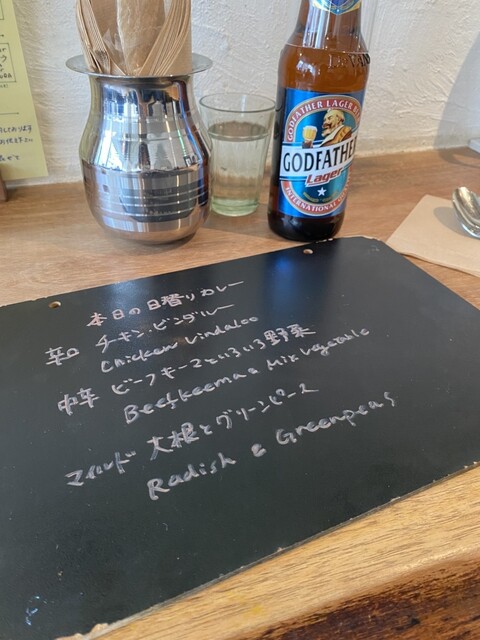 GODFATHER LAGER BEER
GODFATHER
Lager
INTERNATIONAL
本日の日替りカレー
辛口 チキンビンダルー
Chicken Vindaloo
中辛 ビーフキーマといろいろ野菜
Beefkeema & Mix vegetable
マイルド 大根とグリーンピース
Radish & Greenpeas